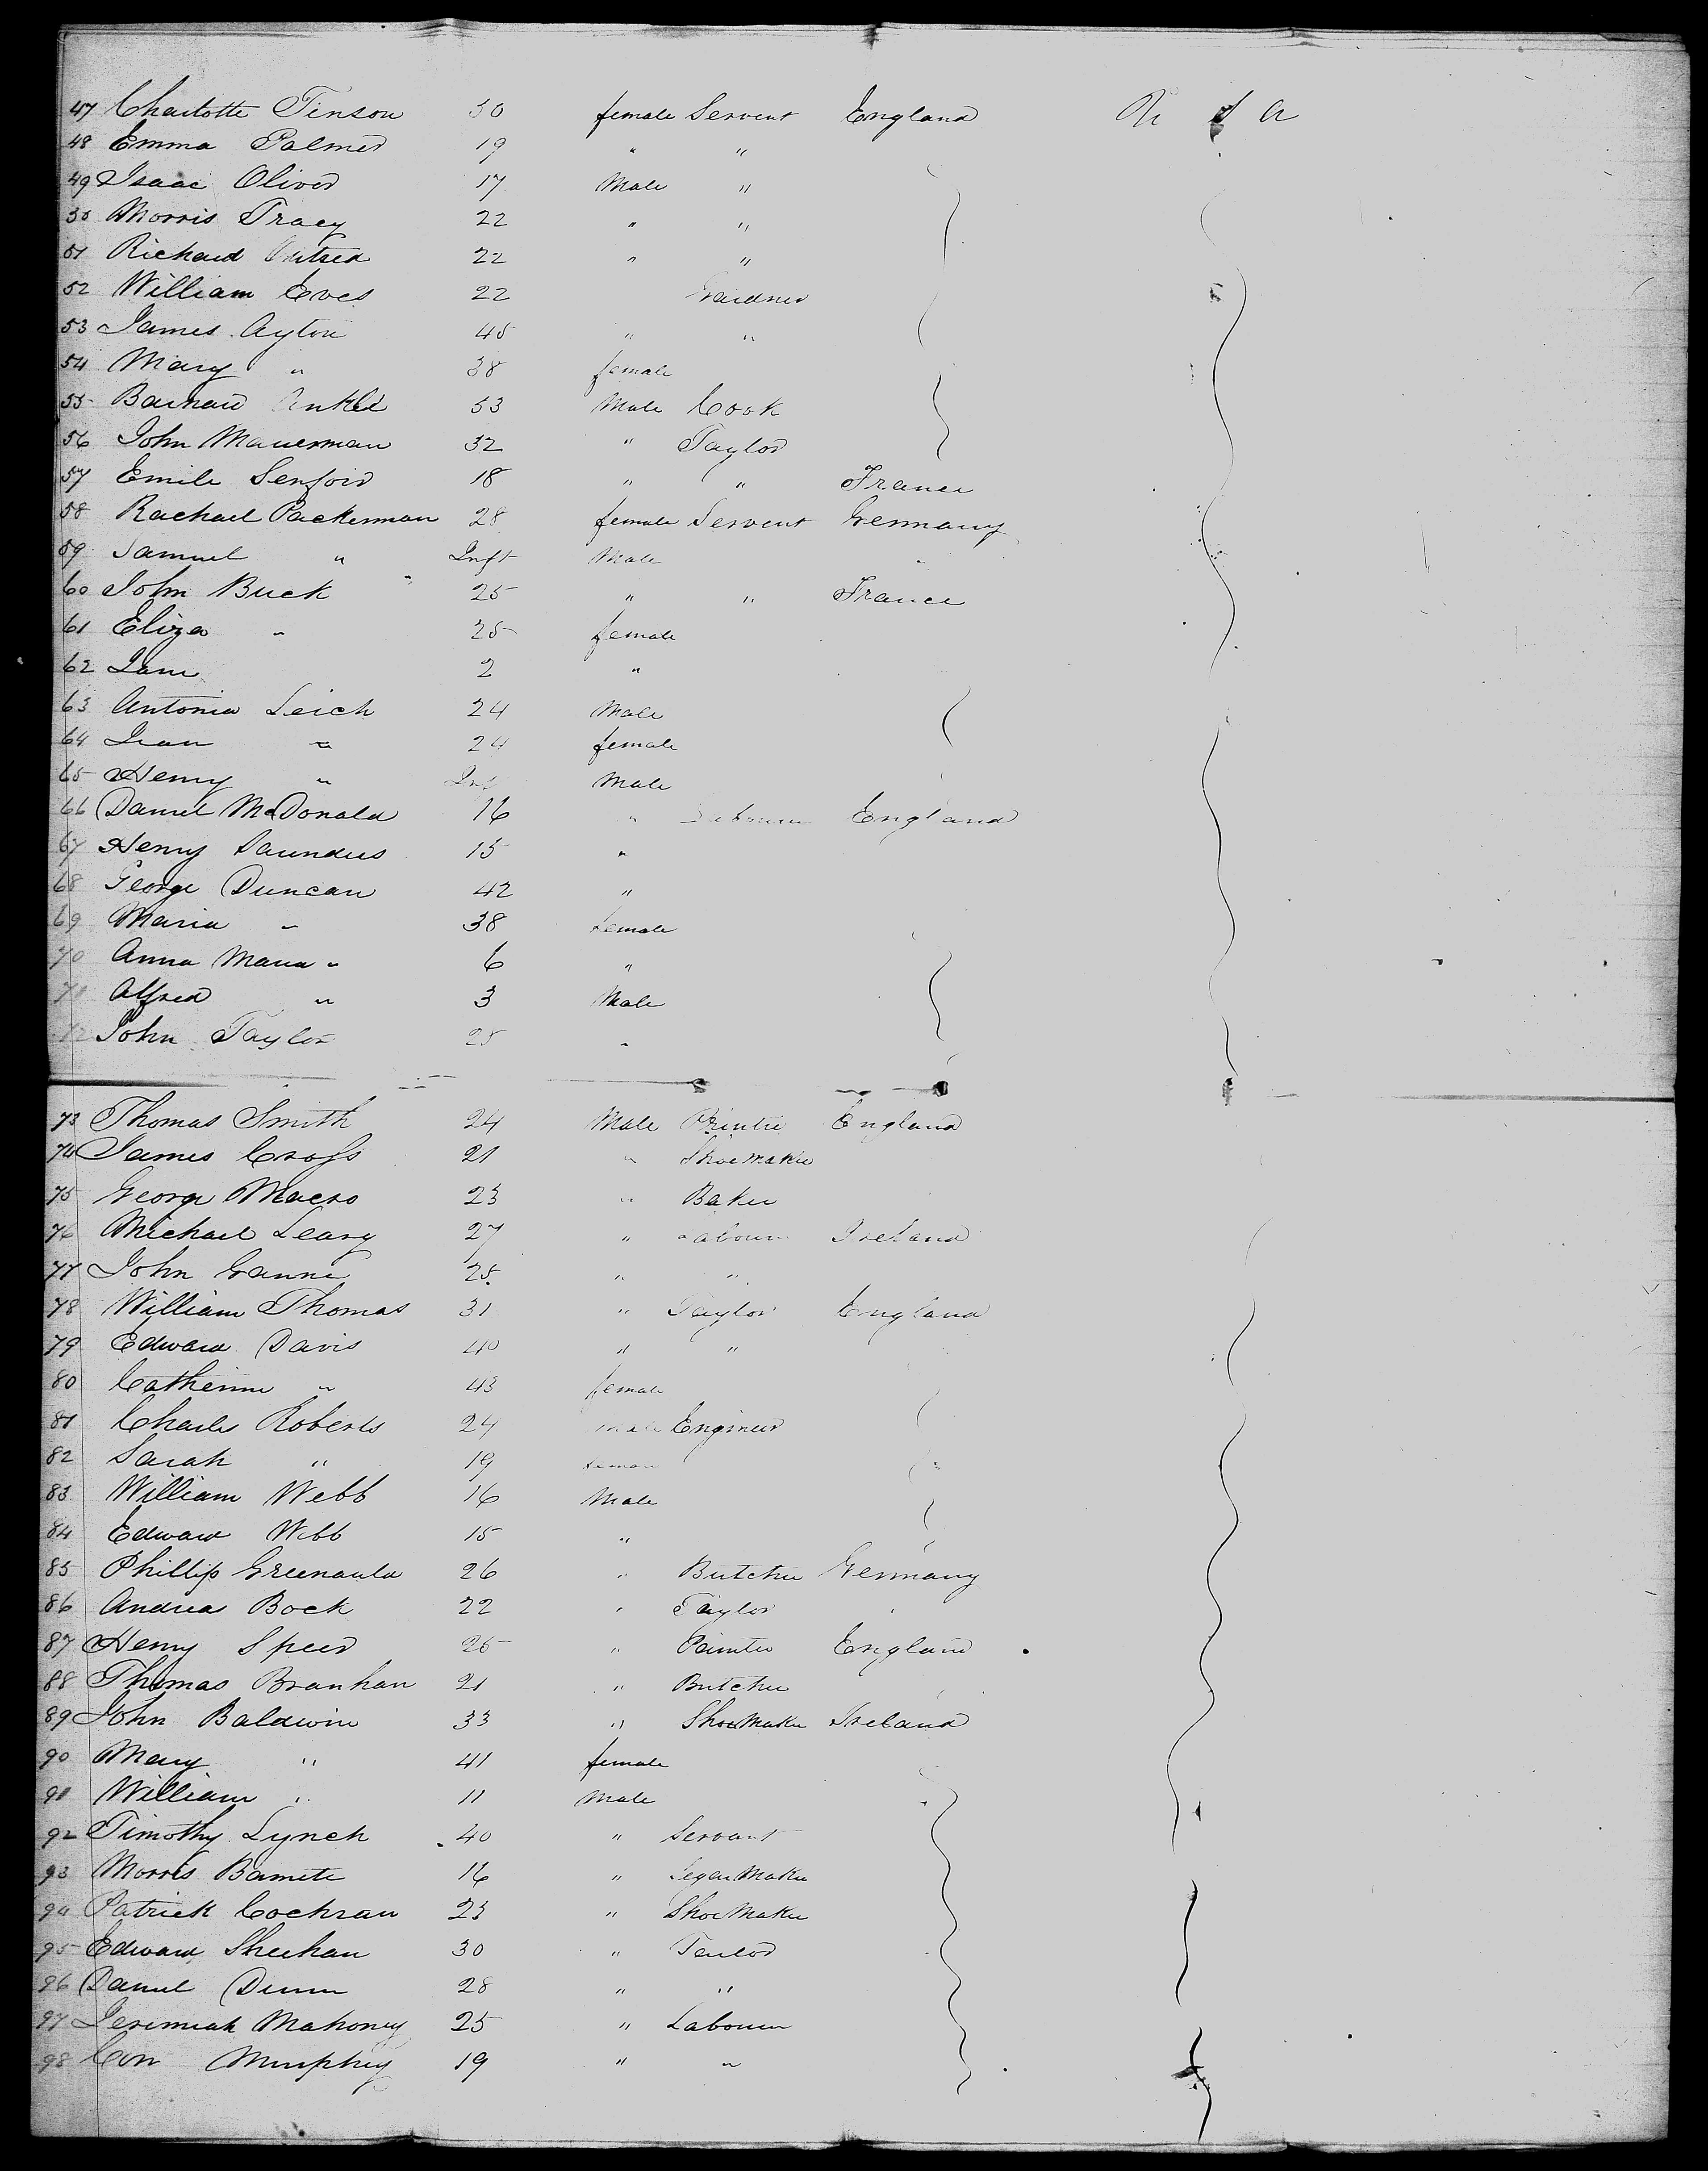 47 Charlotte Tinson 30 female Servent England U S A
48 Emma Palmer 19 " "
49 Isaac Oliver 17 Male "
50 Morris Tracy 22 " "
51 Richard 22 " "
52 William Eves 22 Gardner
53 James Ayton 45 " "
54 Mary " 38 female
55 Barnard 53 Male Cook
56 John Mauerman 32 " Taylor
57 Emile 18 " " France
58 Rachael Packerman 28 female Servent Germany
59 Samuel " Inft Male
60 John Buck 25 " " France
61 Eliza " 25 female
62 Jane 2 "
63 Antonia Leich 24 Male
64 " 24 female
65 Henry " Inf Male
66 Daniel McDonald 16 " England
67 Henry Saunders 15 "
68 George Duncan 42 "
69 Maria " 38 female
70 Anna Maria " 6 "
71 Alfred " 3 Male
72 John Taylor 25 "
73 Thomas Smith 24 Male Printer England
74 James Cross 21 " Shoemaker
75 George Macro 23 " Baker
76 Michael Leary 27 " Labourer Ireland
77 John 25 " "
78 William Thomas 31 " Taylor England
79 Edward Davis 40 " "
80 Catherine " 43 female
81 Charles Roberts 24 Male Engineer
82 Sarah " 19 female
83 William Webb 16 Male
84 Edward Webb 15 "
85 Phillip Greenauld 26 " Butcher Germany
86 Andrea Bock 22 " Taylor
87 Henry Speed 25 " Painter England
88 Thomas Branhan 21 " Butcher
89 John Baldwin 33 " Shoemaker Ireland
90 Mary " 41 female
91 William " 11 Male
92 Timothy Lynch 40 " Servant
93 Morris 16 " Segar Maker
94 Patrick Cochran 23 " Shoe Maker
95 Edward Sheehan 30 " Tailor
96 Daniel Dunn 28 " "
97 Jeremiah Mahoney 25 " Labourer
98 Con Murphey 19 " "